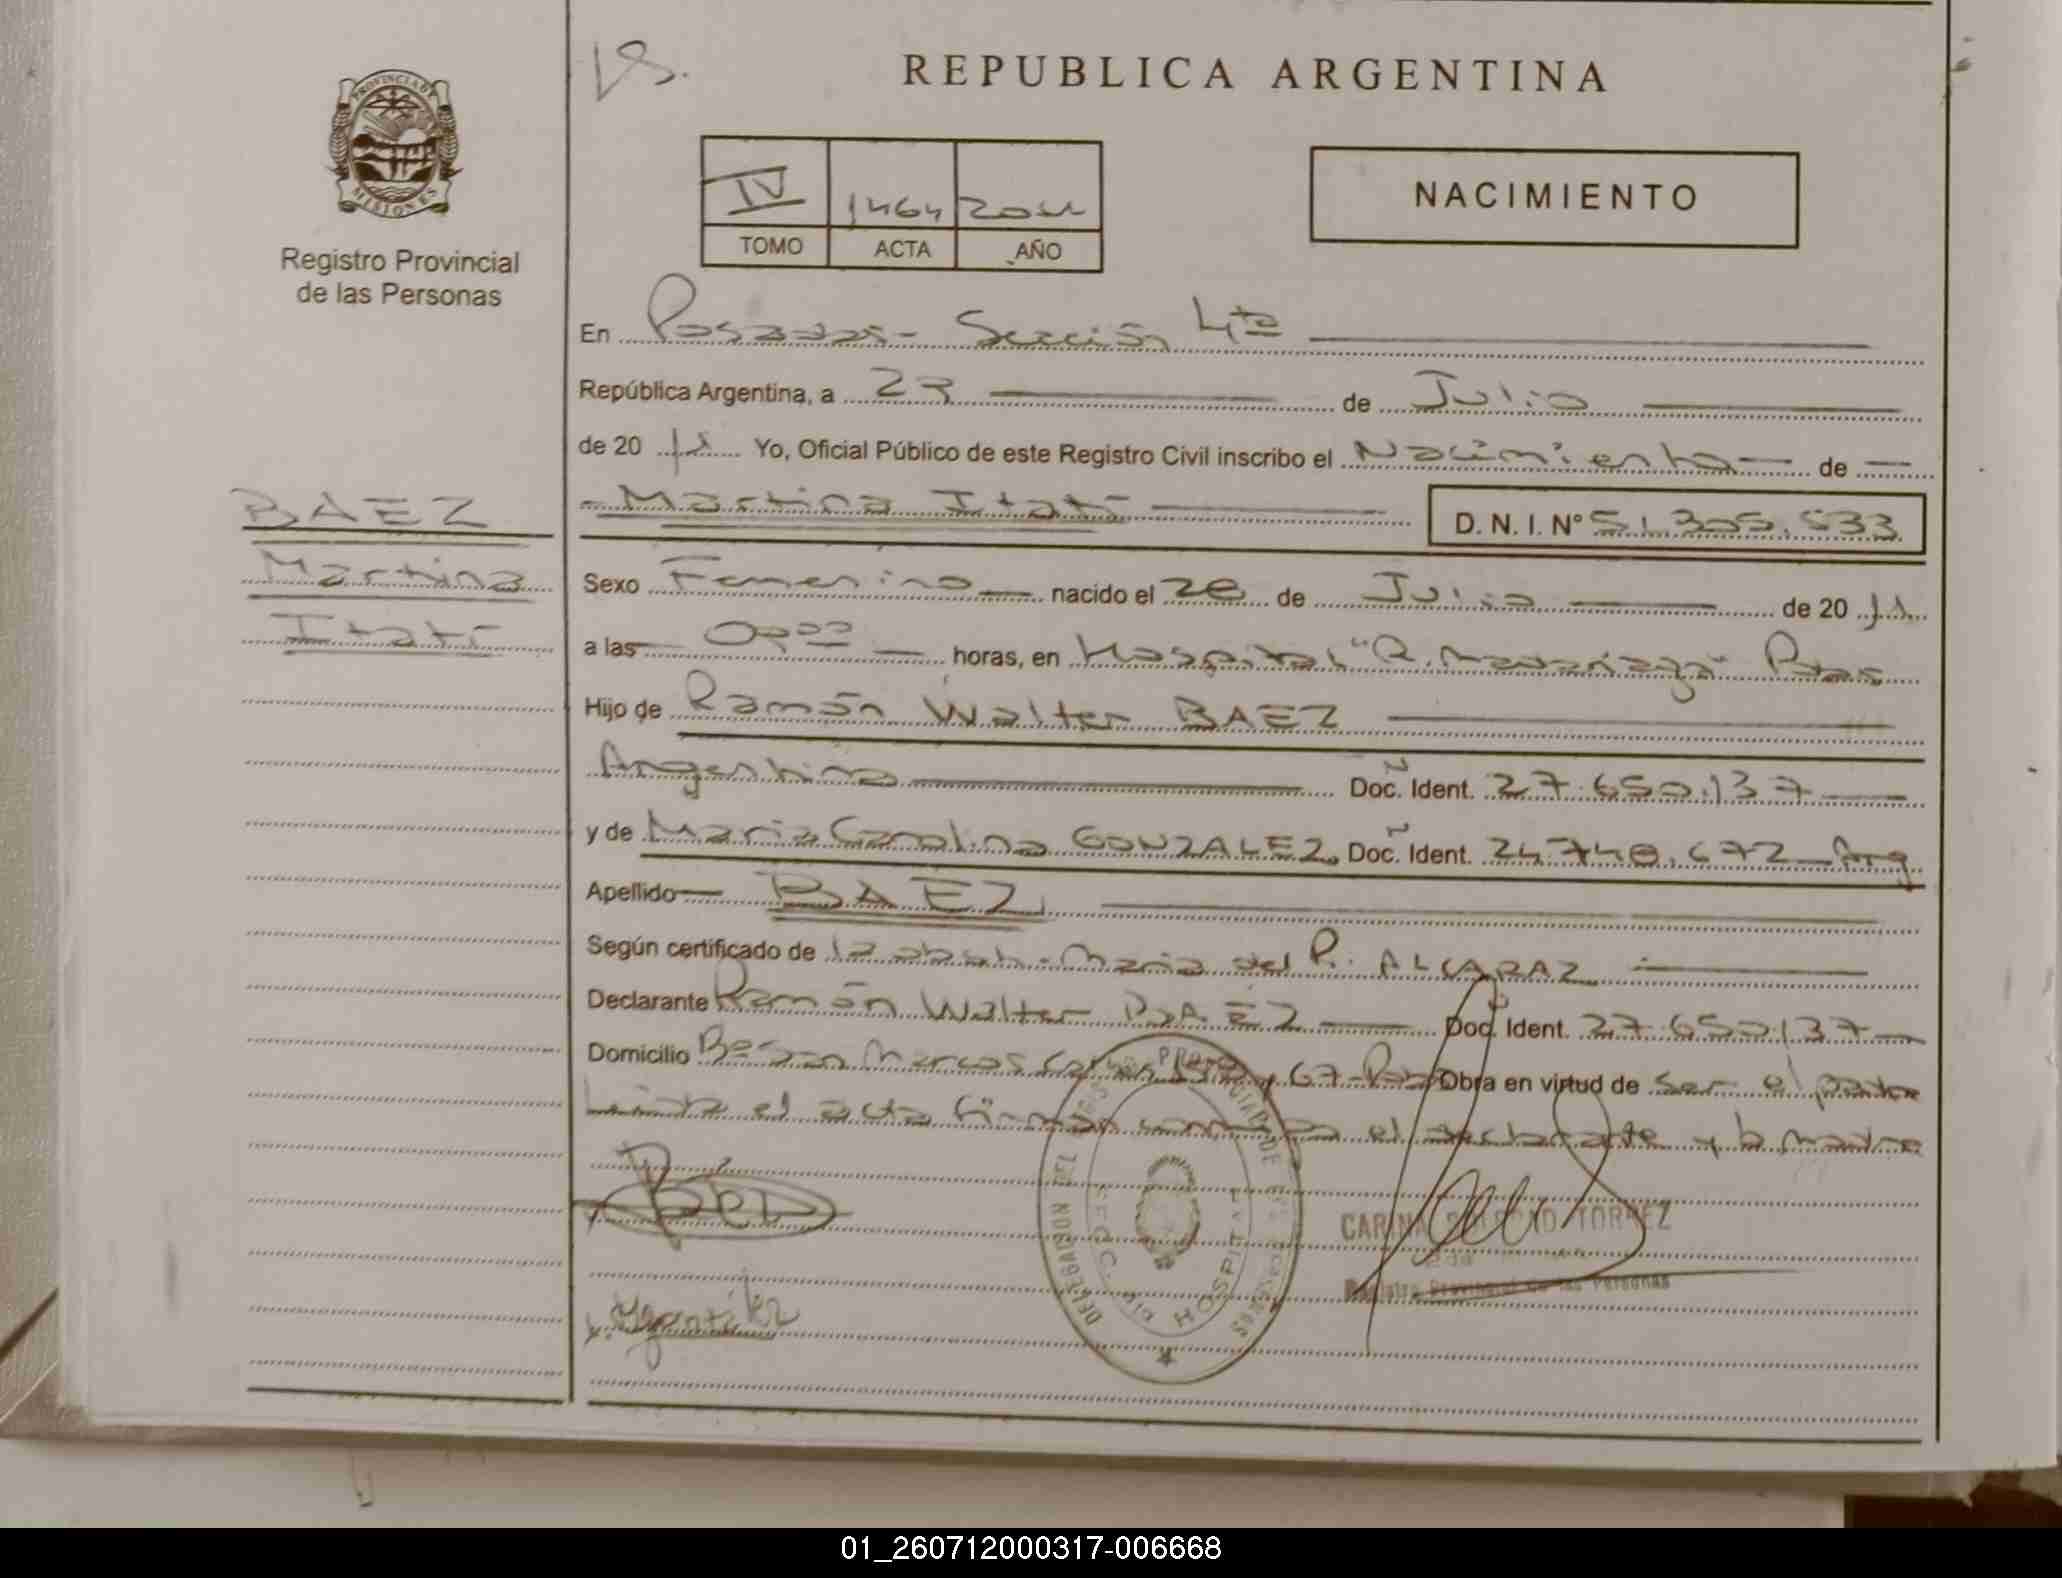 REPUBLICA ARGENTINA
PROVINCIA DE
MISIONES
Registro Provincial
de las Personas
IV 1464 2011
TOMO ACTA AÑO
NACIMIENTO
En Posadas - Sección 4ta
República Argentina, a 23 de Julio
de 20 11 Yo, Oficial Público de este Registro Civil inscribo el Nacimiento de
BAEZ
Martina
Itatí
Martina Itatí D. N. I. N° 51.305.533
Sexo Femenino nacido el 20 de Julio de 20 11
a las horas, en Hospital "R. Madariaga" Pdas
Hijo de Ramón Walter BAEZ
Argentina Doc. Ident. 27.650.137
y de María Carolina GONZALEZ Doc. Ident. 24.740.672 Arg
Apellido BAEZ
Según certificado de la obst. María del P. ALCARAZ
Declarante Ramón Walter BAEZ Doc. Ident. 27.650.137
Domicilio Bº San Marcos 67 Obra en virtud de ser el padre
Leída el acta firman el declarante y la madre
DELEGACION DEL
HOSPITAL
CARINA SOLEDAD TORREZ
Registro Provincial de las Personas
01_260712000317-006668